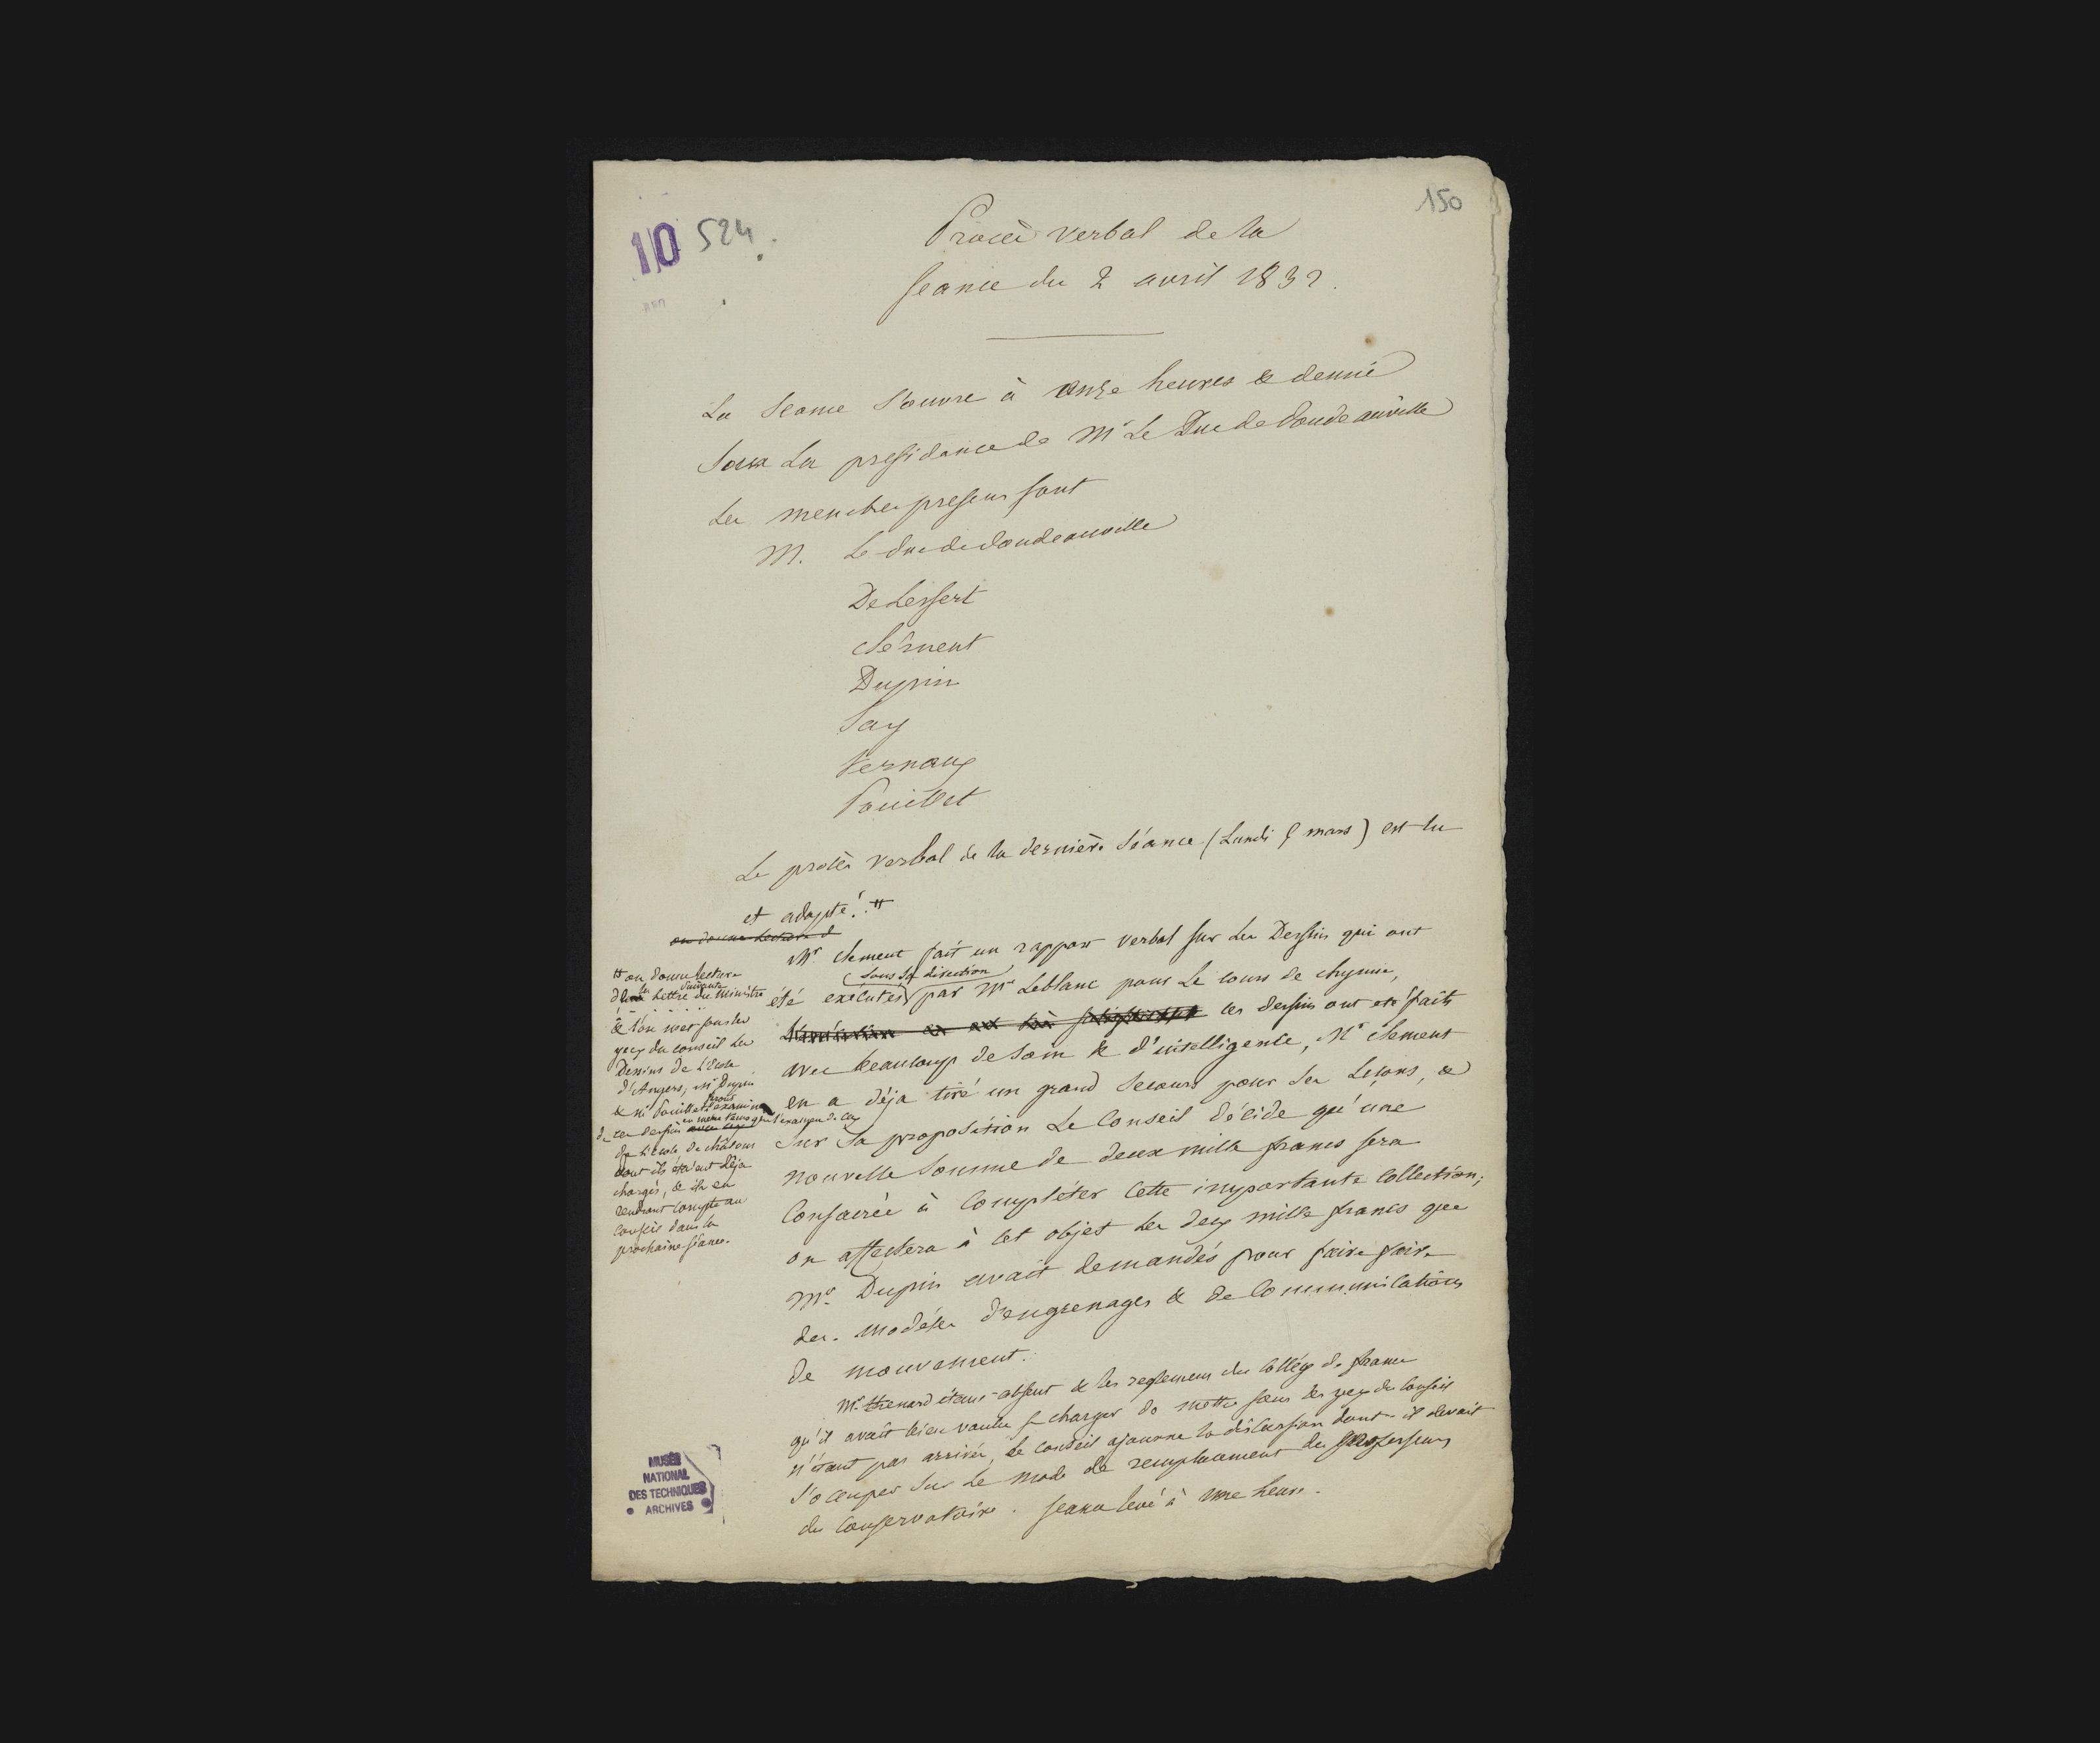 150
10 524.
Procès verbal de la
seance du 2 avril 1832.
La Seance S'ouvre à onze heures & demie
Sous La presidence de Mr Le Duc de Doudeauville
Les membres presens sont
M. Le duc de doudeauville
DeLessert
clément
Dupin
Say
Ternaux
Pouillet
Le procès verbal de la dernière Séance (Lundi 5 mars) est lu
et adopté. #
on donne Lecture d
Mr. clement fait un rapport verbal sur Les Dessins qui ont
sous sa direction
été executés par Mr Leblanc pour Le cours de chymie,
ces dessins ont été faits
avec beaucoup de soin & d'intelligence, Mr clement
en a déja tiré un grand Secours pour Ses Leçons, &
Sur Sa proposition Le Conseil décide qu'une
nouvelle Somme de deux mille francs sera
Consacrée à Compléter Cette importante Collection;
on affectera à cet objet Les deux mille francs que
Mr. Dupin avait demandés pour faire faire
des modéles d'engrenages & de Communications
de mouvement.
Mr. thenard étant absent & les reglemens du Collége de france
qu'il avait bien voulu se charger de mettre sous les yeux du Conseil
n'étant pas arrivés, le Conseil ajourne la discussion dont il devait
s'occuper Sur Le mode de remplacement des professeurs
du Conservatoire. seance levé à une heure.
# on donne lecture
de la Lettre suivante du Ministre
. . . . . .
& l'on met sous les
yeux du conseil Les
Dessins de L'Ecole
d'Angers; Mr Dupin
& Mr Pouillet feront l'examen
de ces dessins en même temps que l'examen de ceux
de L'école de châlons
dont ils étaient déja
chargés, & ils en
rendront compte au
Conseil dans la
prochaine séance.
MUSÉE
NATIONAL
DES TECHNIQUES
ARCHIVES